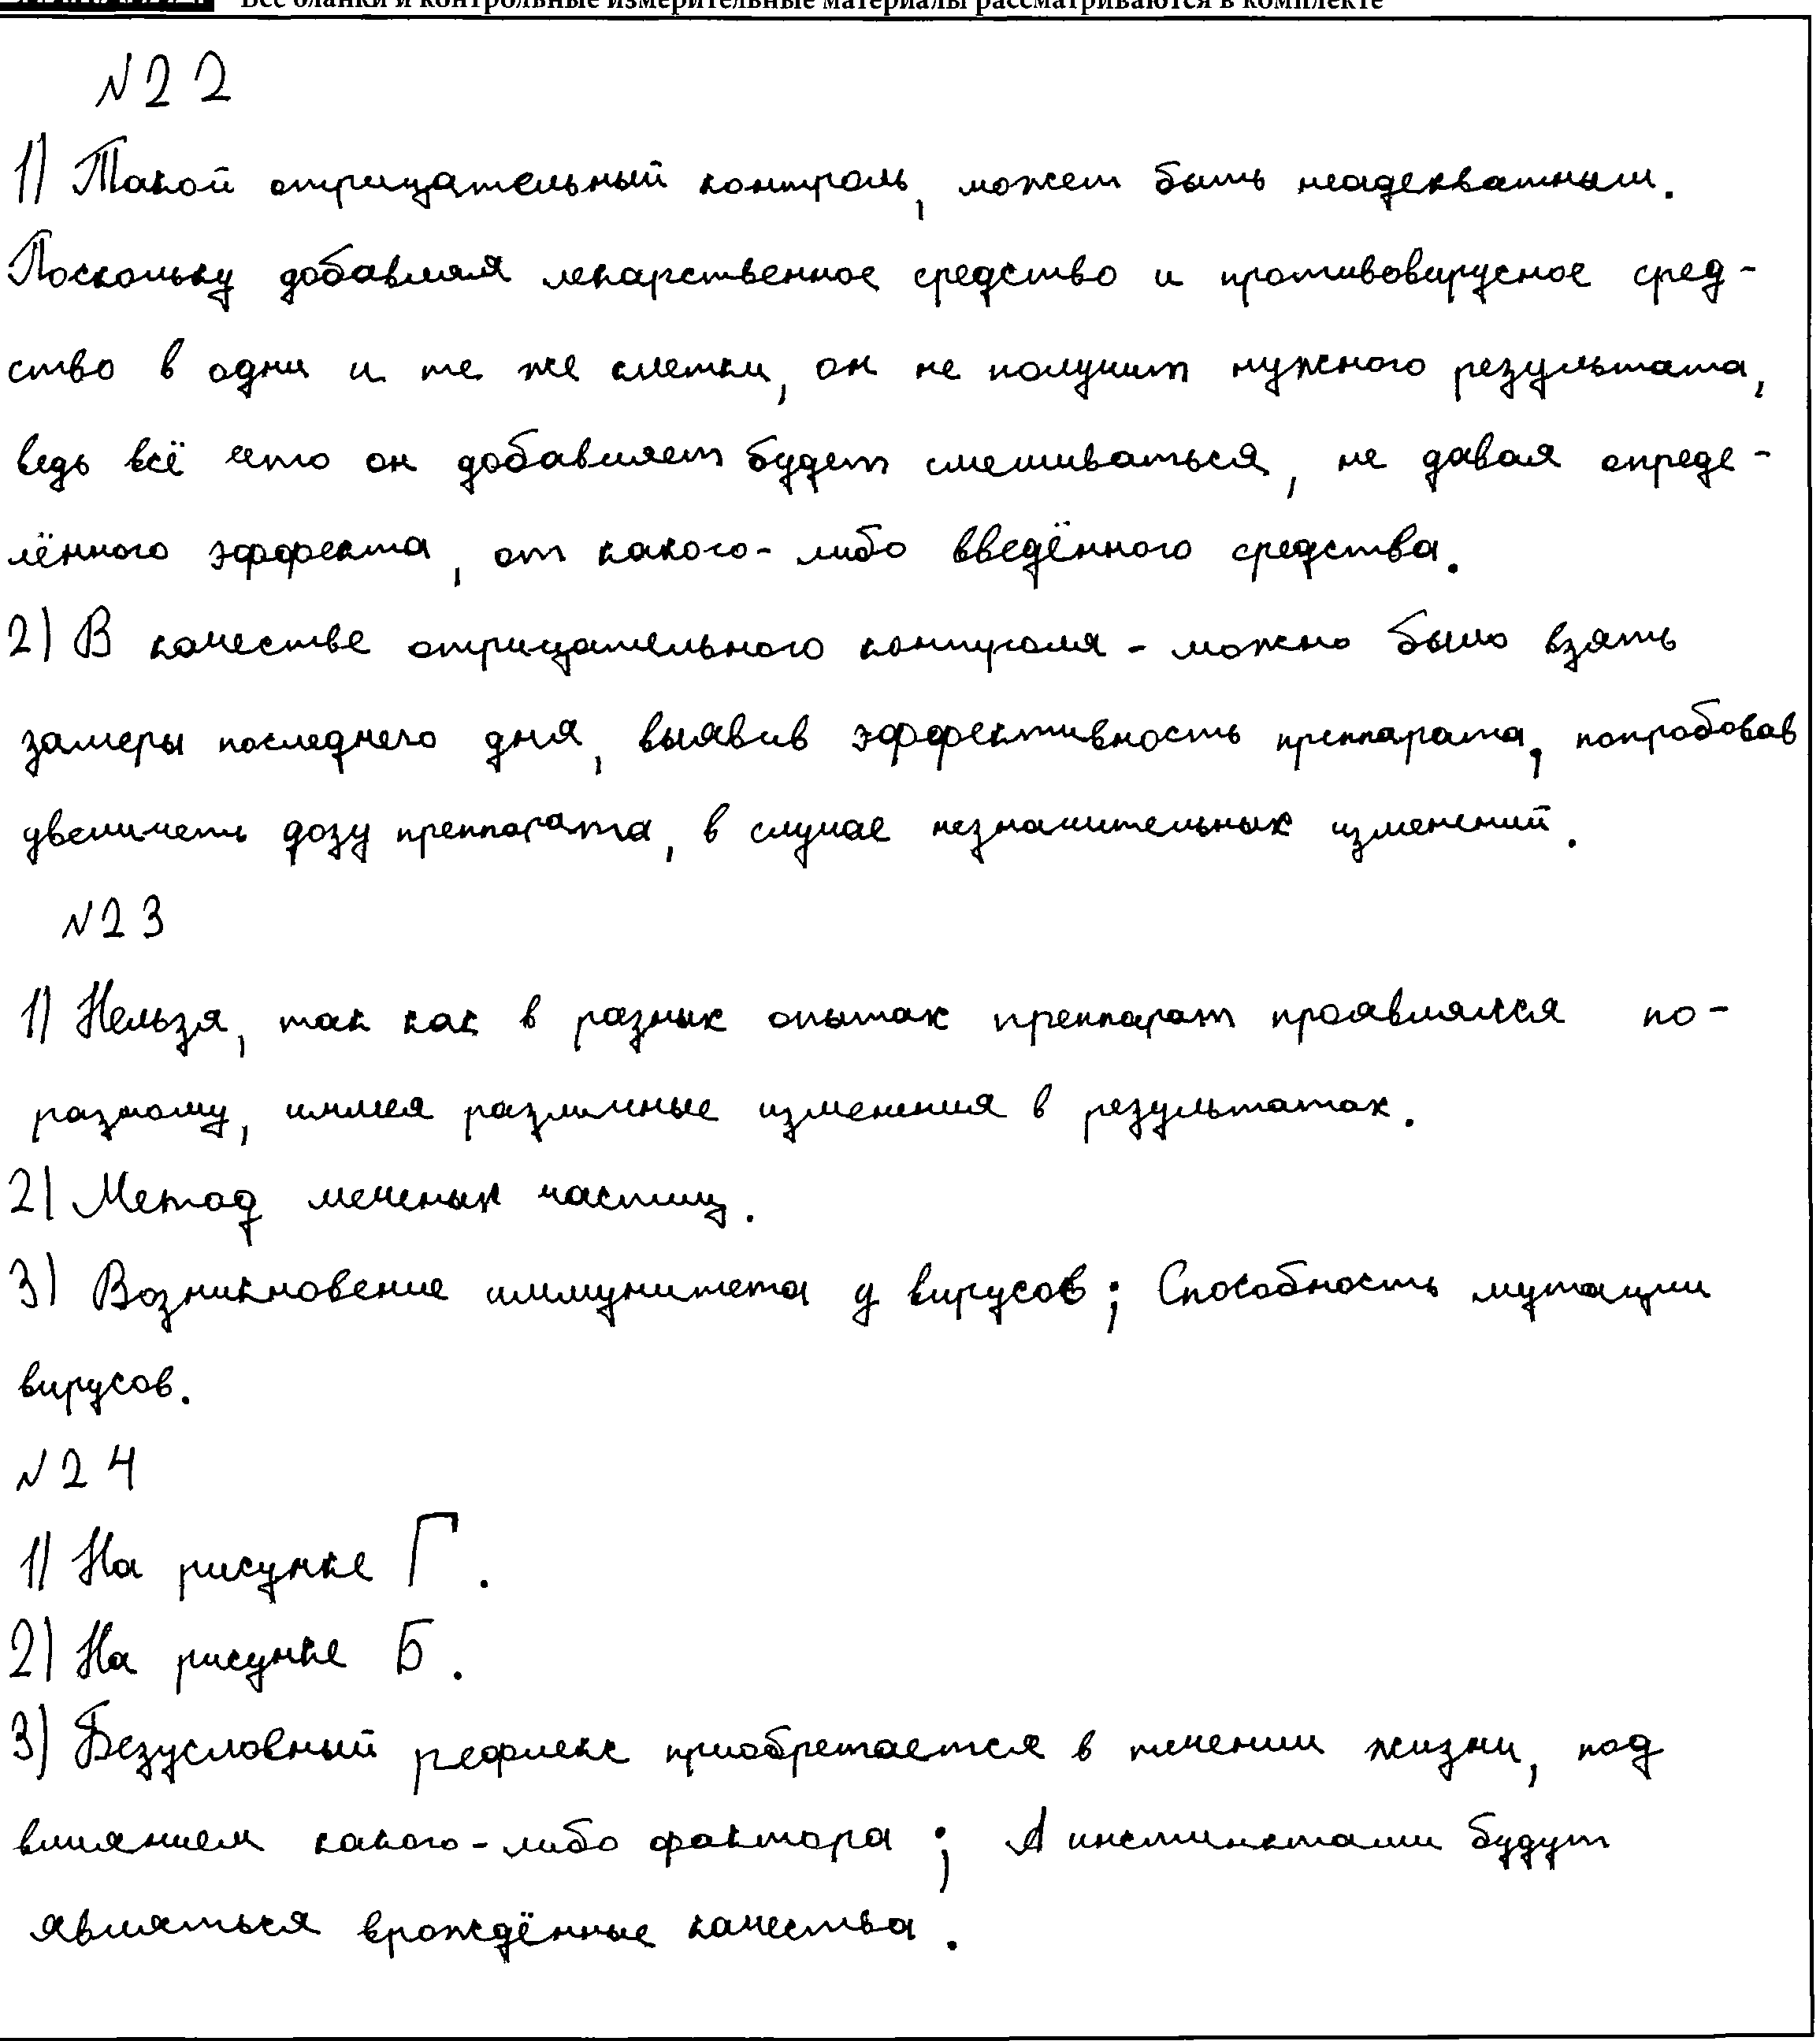 Все бланки и контрольные измерительные материалы рассматриваются в комплекте
№22
1) Такой отрицательный контроль, может быть неадекватным.
Поскольку добавляя лекарственное средство и противовирусное сред-
ство в одни и те же клетки, он не получит нужного результата,
ведь всё что он добавляет будет смешиваться, не давая опреде-
лённого эффекта, от какого-либо введённого средства.
2) В качестве отрицательного контроля - можно было взять
замеры последнего дня, выявив эффективность преппарата, попробовав
увеличить дозу преппарата, в случае незначительных изменений.
№23
1) Нельзя, так как в разных опытах преппарат проявлялся по-
разному, имея различные изменения в результатах.
2) Метод меченых частиц.
3) Возникновение иммунитета у вирусов; Способность мутации
вирусов.
№24
1) На рисунке Г.
2) На рисунке Б.
3) Безусловный рефлекс приобретается в течении жизни, под
влиянием какого-либо фактора; А инстинктами будут
являться врождённые качества.